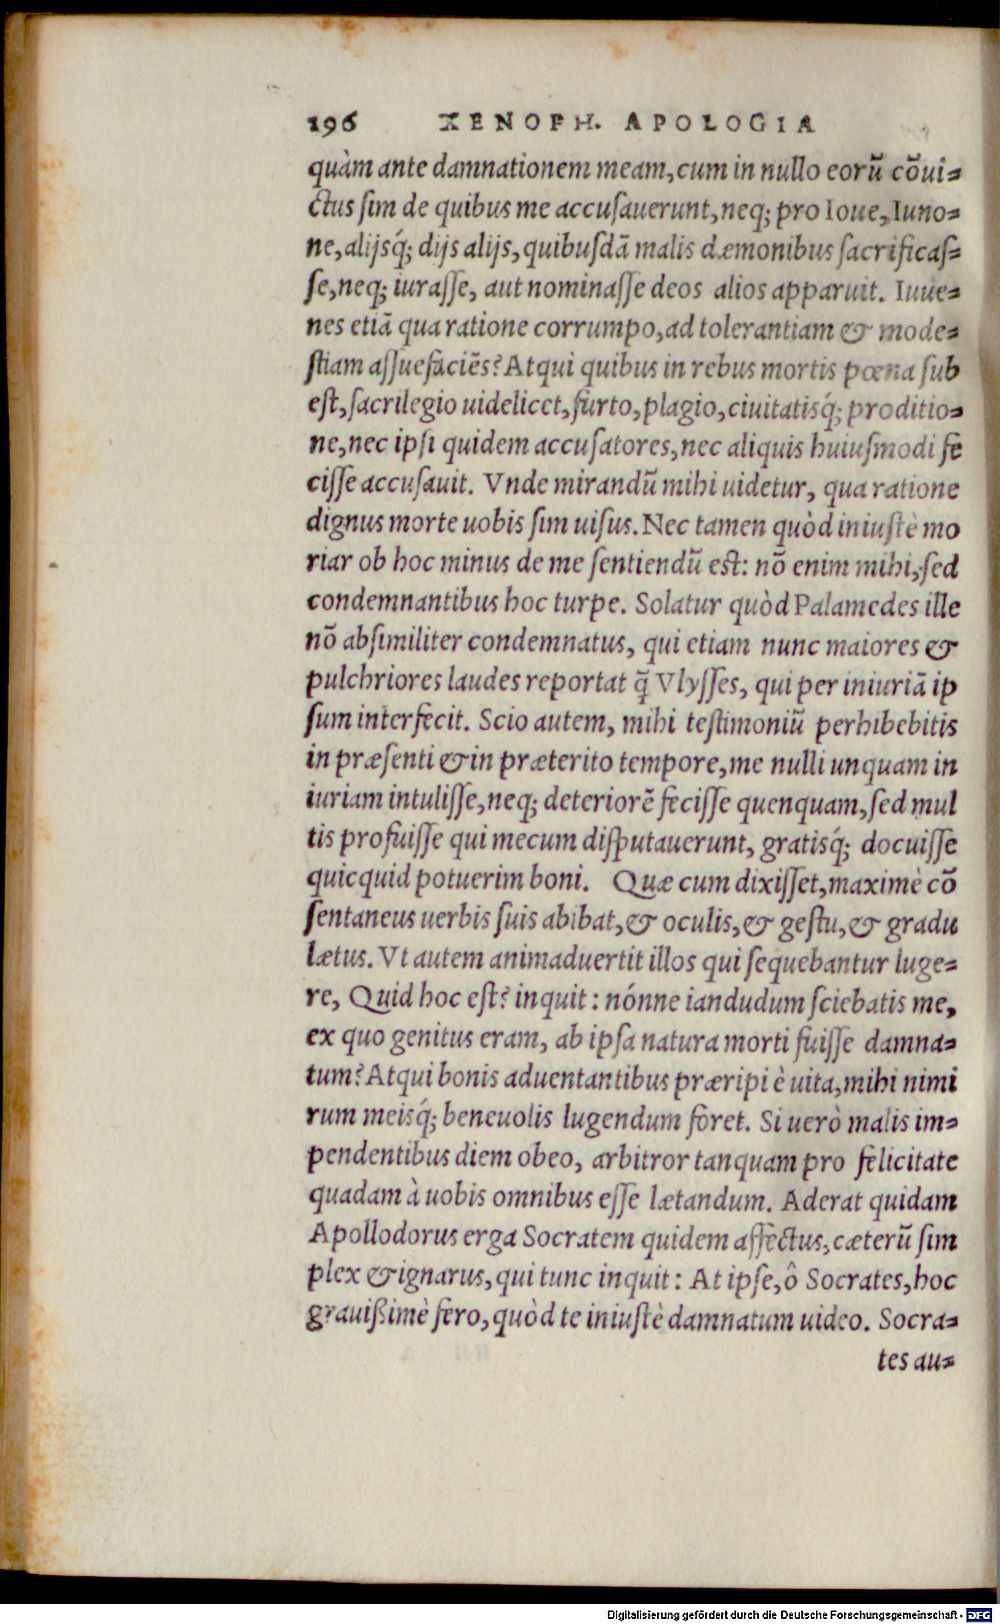 196 XENOPH. APOLOGIA
quàm ante damnationem meam, cum in nullo eorũ cõui-
ctus sim de quibus me accusauerunt, neq; pro Ioue, Iuno-
ne, alijsq́; dijs alijs, quibusdã malis dæmonibus sacrificas-
se, neq; iurasse, aut nominasse deos alios apparuit. Iuue-
nes etiã qua ratione corrumpo, ad tolerantiam & mode-
stiam assuefaciẽs? Atqui quibus in rebus mortis pœna sub
est, sacrilegio uidelicet, furto, plagio, ciuitatisq́; proditio-
ne, nec ipsi quidem accusatores, nec aliquis huiusmodi fe
cisse accusauit. Vnde mirandũ mihi uidetur, qua ratione
dignus morte uobis sim uisus. Nec tamen quòd iniustè mo
riar ob hoc minus de me sentiendũ est: nõ enim mihi, sed
condemnantibus hoc turpe. Solatur quòd Palamedes ille
nõ absimiliter condemnatus, qui etiam nunc maiores &
pulchriores laudes reportat q̃ Vlysses, qui per iniuriã ip
sum interfecit. Scio autem, mihi testimoniũ perhibebitis
in præsenti & in præterito tempore, me nulli unquam in
iuriam intulisse, neq; deteriorẽ fecisse quenquam, sed mul
tis profuisse qui mecum disputauerunt, gratisq́; docuisse
quicquid potuerim boni. Quæ cum dixisset, maximè cõ
sentaneus uerbis suis abibat, & oculis, & gestu, & gradu
lætus. Vt autem animaduertit illos qui sequebantur luge-
re, Quid hoc est? inquit: nónne iandudum sciebatis me,
ex quo genitus eram, ab ipsa natura morti fuisse damna-
tum? Atqui bonis aduentantibus præripi è uita, mihi nimi
rum meisq́; beneuolis lugendum foret. Si uerò malis im-
pendentibus diem obeo, arbitror tanquam pro felicitate
quadam à uobis omnibus esse lætandum. Aderat quidam
Apollodorus erga Socratem quidem affectus, cæterũ sim
plex & ignarus, qui tunc inquit: At ipse, ô Socrates, hoc
grauißimè fero, quòd te iniustè damnatum uideo. Socra-
tes au-
Digitalisierung gefördert durch die Deutsche Forschungsgemeinschaft - DFG